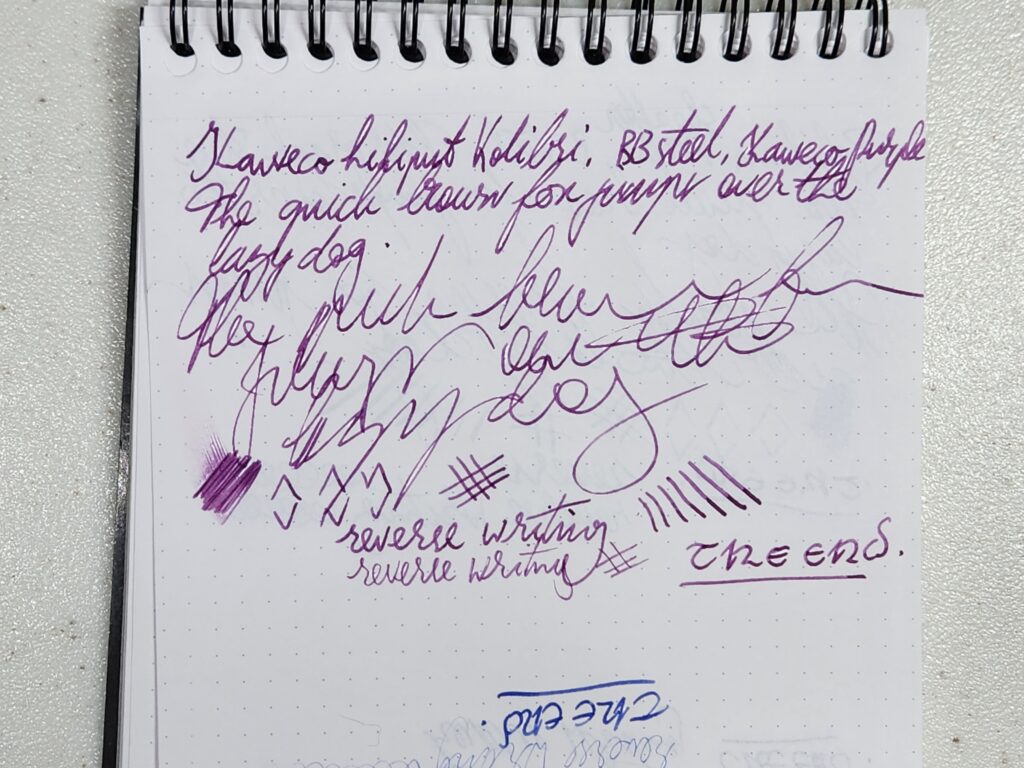 Kaweco Liliput Kolibri, BB steel, Kaweco Purple
The quick brown fox jumps over the
lazy dog.
The quick brown fox
jumps over the
lazy dog
reverse writing
reverse writing
THE END.
THE END.